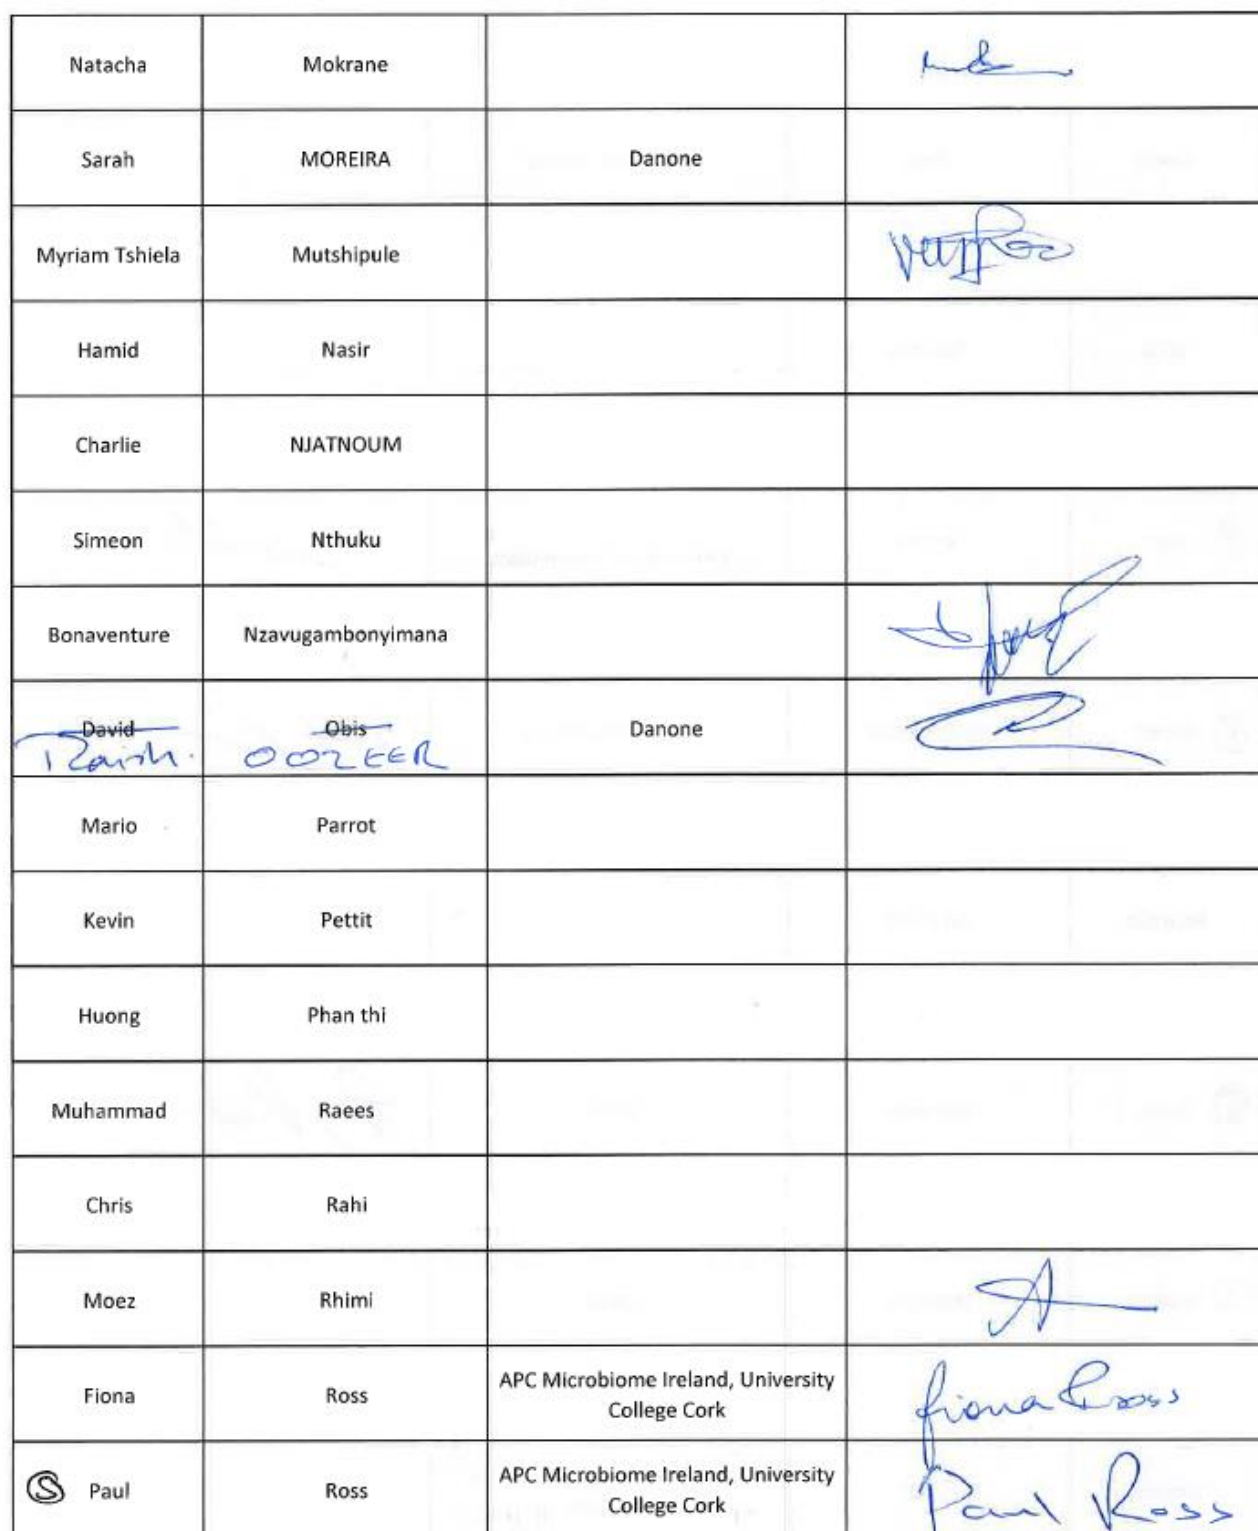 Natacha Mokrane
Sarah MOREIRA Danone
Myriam Tshiela Mutshipule
Hamid Nasir
Charlie NJATNOUM
Simeon Nthuku
Bonaventure Nzavugambonyimana
David Obis Danone
Raish OOZEER
Mario Parrot
Kevin Pettit
Huong Phan thi
Muhammad Raees
Chris Rahi
Moez Rhimi
Fiona Ross APC Microbiome Ireland, University College Cork Fiona Ross
S Paul Ross APC Microbiome Ireland, University College Cork Paul Ross